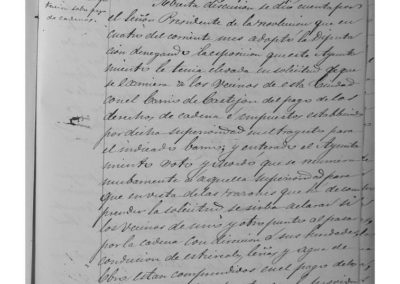 sobre pago
de cadenas.
discusion se dió cuenta por
el Señor Presidente de la resolucion que en
cuatro del corriente mes adopta la Diputa
cion denegando la esposicion que este Ayunta
miento le tenia elevada en solicitud de que
se eximiera á los Vecinos de esta Ciudad
con el Barrio de Castejon del pago de los
derechos de cadena é impuestos establecidos
por dicha superioridad en el trayecto para
el indicado barrio; y enterado el Ayunta
miento votó y acordó que se
nuevamente á aquella superioridad para
que en vista de las razones que
la solicitud se sirva aclarar si
los vecinos de unos y otro punto al pasar
por la cadena con direccion á sus heredades
conduccion de estiercol, leñas y agua de
están comprendidos en el pago de los